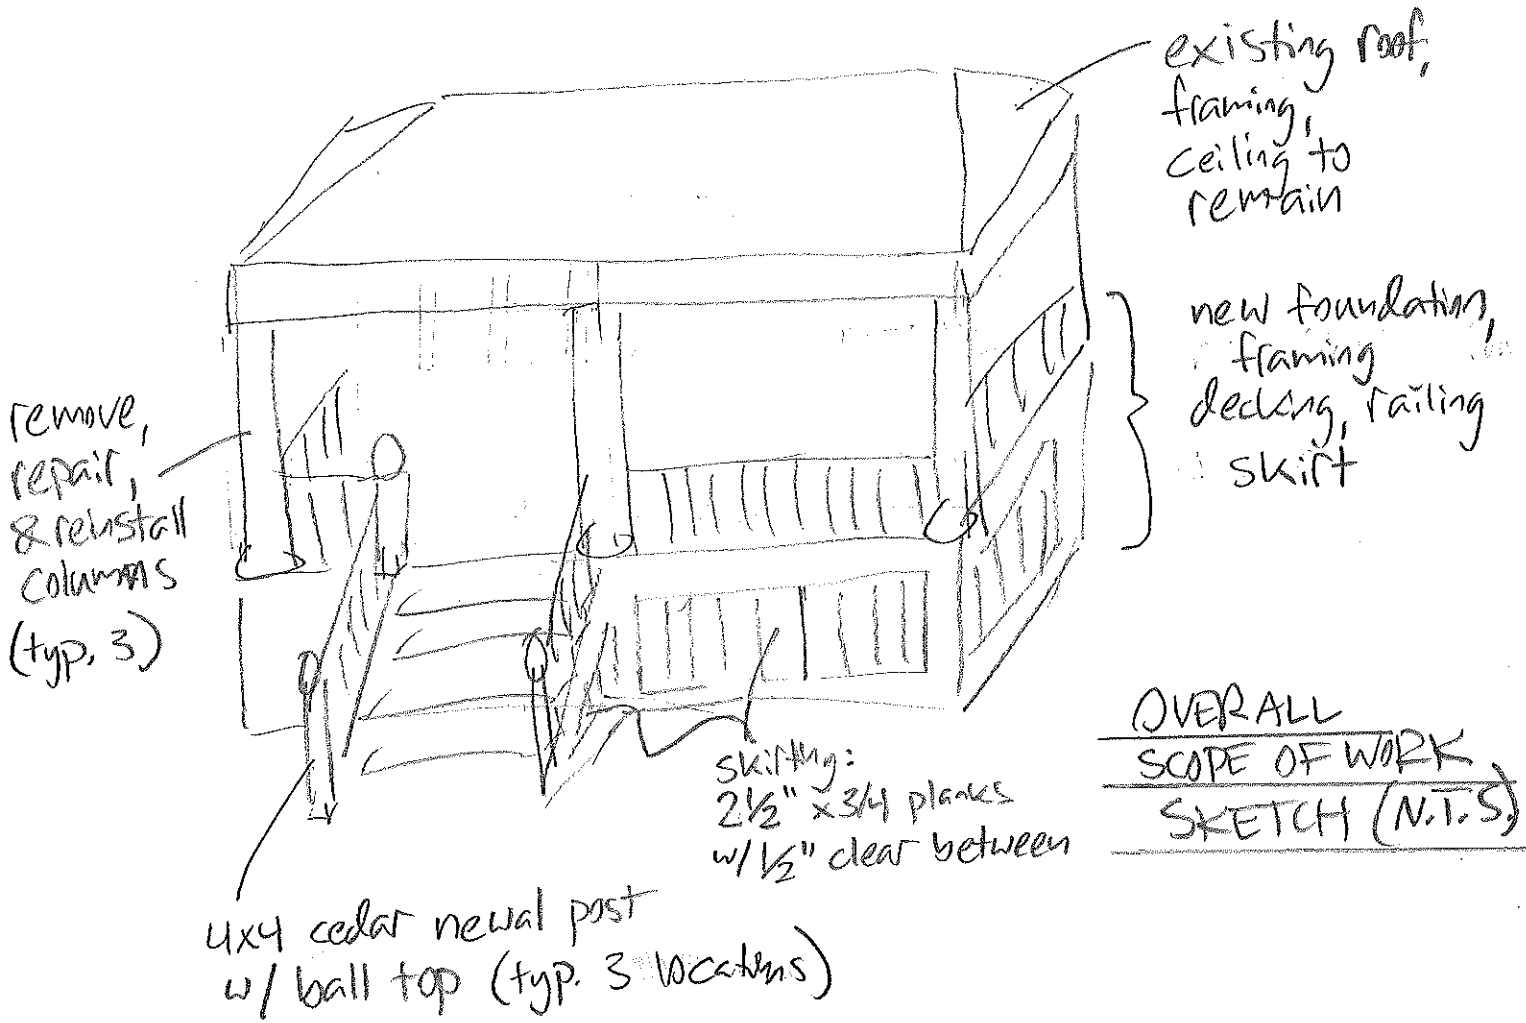 existing roof,
framing,
ceiling to
remain
new foundation,
framing
decking, railing
skirt
remove,
repair,
& reinstall
columns
(typ. 3)
skirting:
2½" x 3/4 planks
w/ ½" clear between
OVERALL
SCOPE OF WORK
SKETCH (N.T.S.)
4x4 cedar newal post
w/ ball top (typ. 3 locations)